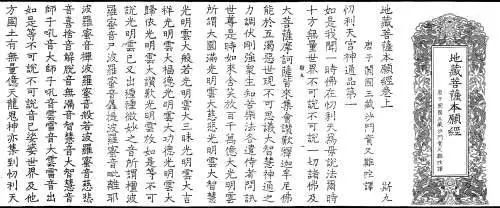 地藏菩薩本願經
唐于闐國三藏沙門實叉難陀譯
地藏菩薩本願經卷上 斯九
唐于闐國三藏沙門實叉難陀譯
忉利天宮神通品第一
如是我聞一時佛在忉利天為母說法爾時
十方無量世界不可說不可說一切諸佛及
大菩薩摩訶薩皆來集會讚歎釋迦牟尼佛
能於五濁惡世現不可思議大智慧神通之
力調伏剛強眾生知苦樂法各遣侍者問訊
世尊是時如來含笑放百千萬億大光明雲
所謂大圓滿光明雲大慈悲光明雲大智慧
光明雲大般若光明雲大三昧光明雲大吉
祥光明雲大福德光明雲大功德光明雲大
歸依光明雲大讚歎光明雲放如是等不可
說光明雲已又出種種微妙之音所謂檀波
羅蜜音尸波羅蜜音羼提波羅蜜音毗離耶
波羅蜜音禪波羅蜜音般若波羅蜜音慈悲
音喜捨音解脫音無漏音智慧音大智慧音
師子吼音大師子吼音雲雷音大雲雷音出
如是等不可說不可說音已娑婆世界及他
方國土有無量億天龍鬼神亦集到忉利天